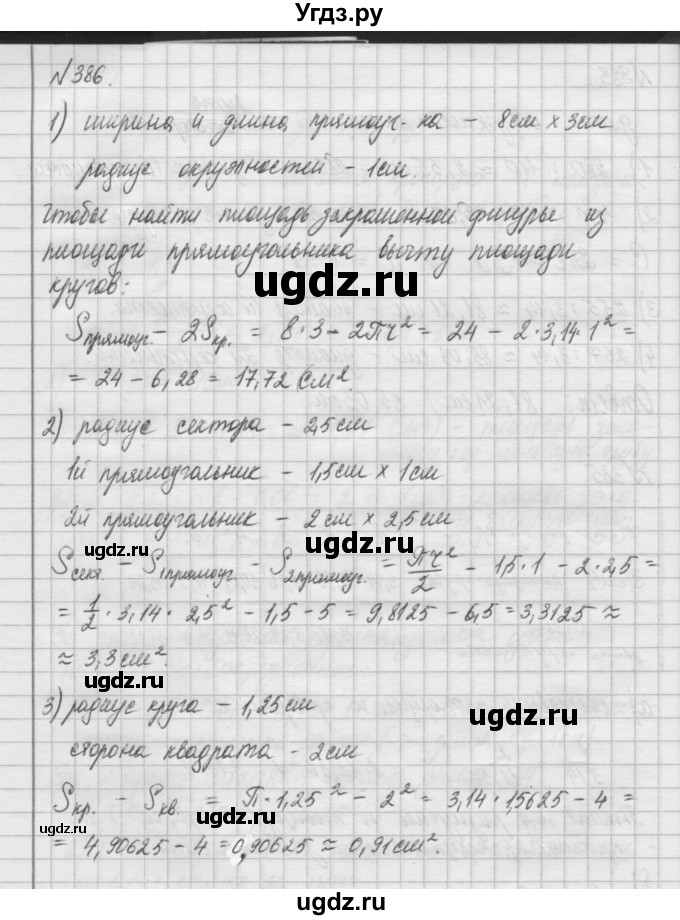 Угдз.ру
№386.
1) ширина и длина прямоуг-ка – 8см × 3см
радиус окружностей – 1см.
Чтобы найти площадь закрашенной фигуры из
площади прямоугольника вычту площади
кругов:
ugdz.ru
Sпрямоуг. – 2Sкр. = 8·3 – 2πr² = 24 – 2·3,14·1² =
ugdz.ru
= 24 – 6,28 = 17,72 (см².
2) радиус сектора – 2,5см
1й прямоугольник – 1,5см × 1см
2й прямоугольник – 2см × 2,5см
ugdz.ru
Sсект. – S1прямоуг. – S2прямоуг. = πr²/2 – 1,5·1 – 2·2,5 =
= 1/2 · 3,14 · 2,5² – 1,5 – 5 = 9,8125 – 6,5 = 3,3125 ≈
≈ 3,3см².
ugdz.ru
3) радиус круга – 1,25см
ugdz.ru
сторона квадрата – 2см
Sкр. – Sкв. = π·1,25² – 2² = 3,14·1,5625 – 4 =
ugdz.ru
= 4,90625 – 4 = 0,90625 ≈ 0,91см².
ugdz.ru